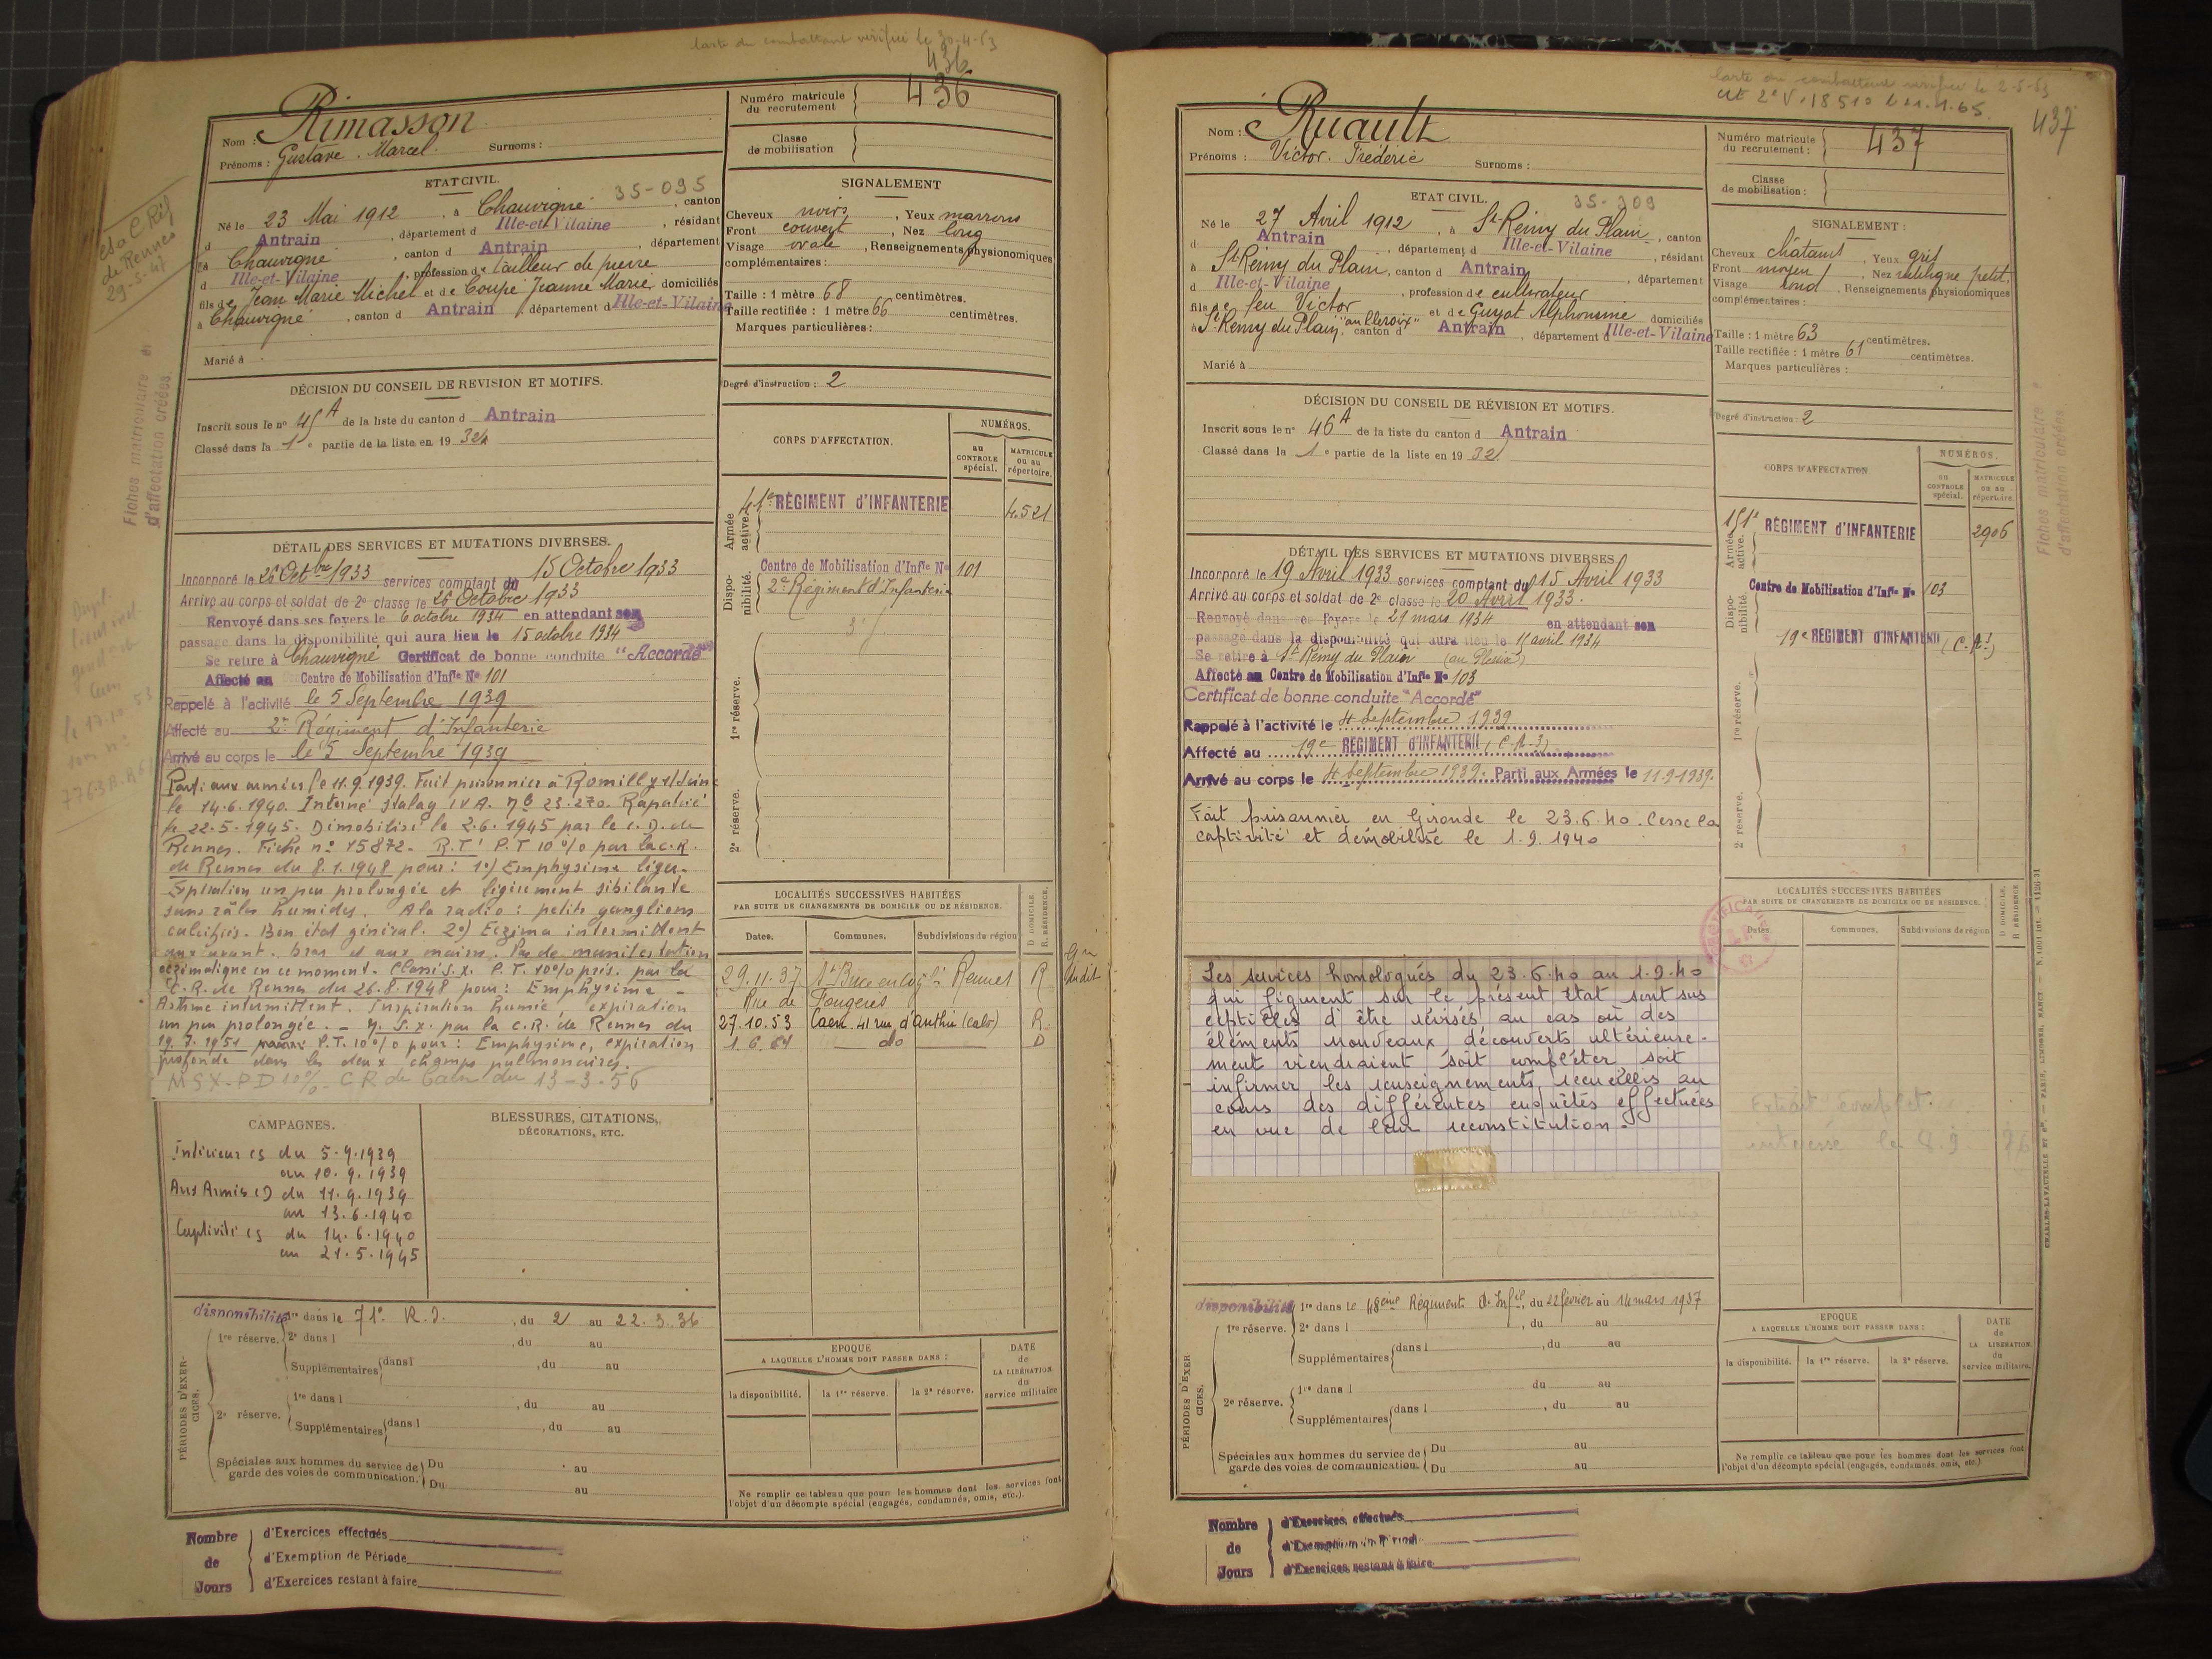 Carte du combattant vérifiée le 30-4-63
436
Nom : Rimasson
Prénoms : Gustave. Marcel. Surnoms :
Numéro matricule du recrutement 436
Classe de mobilisation
ETAT CIVIL.
35-095
Né le 23 Mai 1912, à Chauvigné, canton
d Antrain, département d Ille-et-Vilaine, résidant
à Chauvigné, canton d Antrain, département
d Ille-et-Vilaine, profession de tailleur de pierre
fils de Jean Marie Michel et de Coupé Jeanne Marie domiciliés
à Chauvigné, canton d Antrain, département d Ille-et-Vilaine
Marié à
SIGNALEMENT
Cheveux noirs, Yeux marrons
Front couvert, Nez long
Visage ovale, Renseignements physionomiques
complémentaires :
Taille : 1 mètre 68 centimètres.
Taille rectifiée : 1 mètre 66 centimètres.
Marques particulières :
Degré d'instruction : 2
DÉCISION DU CONSEIL DE REVISION ET MOTIFS.
Inscrit sous le nº 45 A de la liste du canton d Antrain
Classé dans la 1e partie de la liste en 1932
CORPS D'AFFECTATION.
NUMÉROS.
au CONTROLE spécial.
MATRICULE ou au répertoire.
Armée active.
41e RÉGIMENT d'INFANTERIE 4.521
Disponibilité.
Centre de Mobilisation d'Infie Nº 101
2e Régiment d'Infanterie
1re réserve.
2e réserve.
DÉTAIL DES SERVICES ET MUTATIONS DIVERSES.
Incorporé le 26 Octbre 1933 services comptant du 15 Octobre 1933
Arrivé au corps et soldat de 2e classe le 26 Octobre 1933
Renvoyé dans ses foyers le 6 octobre 1934 en attendant son
passage dans la disponibilité qui aura lieu le 15 octobre 1934
Se retire à Chauvigné Certificat de bonne conduite "Accordé"
Affecté au Centre de Mobilisation d'Infie Nº 101
Rappelé à l'activité le 5 Septembre 1939
Affecté au 2e Régiment d'Infanterie
Arrivé au corps le le 5 Septembre 1939
Parti aux armées le 11.9.1939. Fait prisonnier à Romilly s/Seine
le 14.6.1940. Interné Stalag IV A. Nº 23.270. Rapatrié
le 22.5.1945. Démobilisé le 2.6.1945 par le C.D. de
Rennes. Fiche nº 15872. R.T! P.T 10% par la C.R.
de Rennes du 8.1.1948 pour : 1º) Emphysème léger.
Expiration un peu prolongée et légèrement sibilante
sans râles humides. A la radio : petits ganglions
calcifiés. Bon état général. 2º) Eczéma intermittent
aux avant-bras et aux mains. Pas de manifestation
eczématique en ce moment. Classé S.X. P.T. 10% prés. par la
C.R. de Rennes du 26.8.1948 pour : Emphysème -
Asthme intermittent. Inspiration humée expiration
un peu prolongée. - M.S.X. par la C.R. de Rennes du
19.7.1951 P.T. 10% pour : Emphysème, expiration
profonde dans les deux champs pulmonaires.
MSX-PD 10% CR de Caen du 13-3-56
LOCALITÉS SUCCESSIVES HABITÉES
PAR SUITE DE CHANGEMENTS DE DOMICILE OU DE RÉSIDENCE.
Dates. Communes. Subdivisions de région
D DOMICILE. R RÉSIDENCE.
29.11.37 St Brice en Coglès Rennes R
Rue de Fougères
27.10.53 Caen. 41 rue d'Authie (Calv) R.
1.6.64 do D
CAMPAGNES.
Intérieur CS du 5.9.1939
au 10.9.1939
Aux Armées CD du 11.9.1939
au 13.6.1940
Captivité CS du 14.6.1940
au 21.5.1945
BLESSURES, CITATIONS,
DÉCORATIONS, ETC.
PÉRIODES D'EXERCICES.
disponibilité
1re réserve.
1re dans le 71e R.I., du 2 au 22.3.36
2e dans l , du au
Supplémentaires dans l , du au
2e réserve.
1re dans l , du au
Supplémentaires dans l , du au
Spéciales aux hommes du service de garde des voies de communication.
Du au
Du au
EPOQUE
A LAQUELLE L'HOMME DOIT PASSER DANS :
la disponibilité. la 1re réserve. la 2e réserve.
DATE de LA LIBÉRATION du service militaire
Ne remplir ce tableau que pour les hommes dont les services font
l'objet d'un décompte spécial (engagés, condamnés, omis, etc.).
Nombre de Jours
d'Exercices effectués
d'Exemption de Période
d'Exercices restant à faire
Fiches matriculaire et
d'affectation créées
de Rennes
29-5-47
Carte du combattant vérifiée le 2-5-63
437
Nom : Ruault
Prénoms : Victor. Frédéric Surnoms :
Numéro matricule du recrutement : 437
Classe de mobilisation :
ETAT CIVIL.
35-309
Né le 27 Avril 1912, à St-Rémy du Plain, canton
d Antrain, département d Ille-et-Vilaine, résidant
à St Rémy du Plain, canton d Antrain, département
d Ille-et-Vilaine, profession de cultivateur
fils de feu Victor et de Guyot Alphonsine domiciliés
à St Rémy du Plain, canton d Antrain, département d Ille-et-Vilaine
Marié à
SIGNALEMENT :
Cheveux châtains, Yeux gris
Front moyen, Nez rectiligne petit,
Visage rond, Renseignements physionomiques
complémentaires :
Taille : 1 mètre 63 centimètres.
Taille rectifiée : 1 mètre 61 centimètres.
Marques particulières :
Degré d'instruction : 2
DÉCISION DU CONSEIL DE RÉVISION ET MOTIFS.
Inscrit sous le nº 46 A de la liste du canton d Antrain
Classé dans la 1e partie de la liste en 1932
CORPS D'AFFECTATION
NUMÉROS.
au CONTROLE spécial.
MATRICULE ou au répertoire.
Armée active.
151e RÉGIMENT d'INFANTERIE 2906
Disponibilité.
Centre de Mobilisation d'Infie Nº 103
19e RÉGIMENT d'INFANTERIE
1re réserve.
2e réserve.
DÉTAIL DES SERVICES ET MUTATIONS DIVERSES
Incorporé le 19 Avril 1933 services comptant du 15 Avril 1933
Arrivé au corps et soldat de 2e classe le 20 Avril 1933.
Renvoyé dans ses foyers le 29 mars 1934 en attendant son
passage dans la disponibilité qui aura lieu le 15 avril 1934
Se retire à St Rémy du Plain
Affecté au Centre de Mobilisation d'Infie Nº 103
Certificat de bonne conduite "Accordé"
Rappelé à l'activité le 4 Septembre 1939
Affecté au 19e RÉGIMENT d'INFANTERIE
Arrivé au corps le 4 Septembre 1939. Parti aux Armées le 11-9-1939.
Fait prisonnier en Gironde le 23.6.40. Cesse la
captivité et démobilisé le 1.9.1940
Les services homologués du 23.6.40 au 1.9.40
qui figurent sur le présent état sont sus
ceptibles d'être révisés au cas où des
éléments nouveaux découverts ultérieure-
ment viendraient soit compléter soit
infirmer les renseignements recueillis au
cours des différentes enquêtes effectuées
en vue de leur reconstitution.
LOCALITÉS SUCCESSIVES HABITÉES
PAR SUITE DE CHANGEMENTS DE DOMICILE OU DE RÉSIDENCE.
Dates. Communes. Subdivisions de région
D DOMICILE. R RÉSIDENCE
Extrait complet
intéressé le 8.9 76
PÉRIODES D'EXERCICES.
disponibilité
1re réserve.
1re dans le 48ème Régiment d'Infie, du 22 février au 14 mars 1937
2e dans l , du au
Supplémentaires dans l , du au
2e réserve.
1re dans l du au
Supplémentaires dans l , du au
Spéciales aux hommes du service de garde des voies de communication.
Du au
Du au
EPOQUE
A LAQUELLE L'HOMME DOIT PASSER DANS :
la disponibilité. la 1re réserve. la 2e réserve.
DATE de LA LIBÉRATION du service militaire.
Ne remplir ce tableau que pour les hommes dont les services font
l'objet d'un décompte spécial (engagés, condamnés, omis, etc.)
Nombre de Jours
d'Exercices effectués
d'Exemption de Période
d'Exercices restant à faire
Fiches matriculaire
d'affectation créées